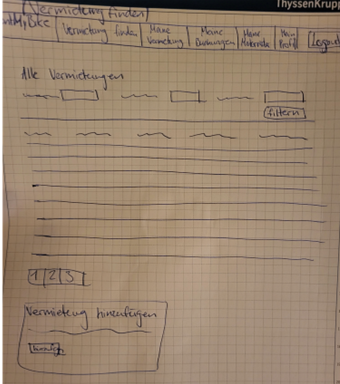 ThyssenKrupp
(Vermietung finden)
Vermietung finden Meine Vermietung Meine Buchungen Meine Mein Profil Logout
Alle Vermietungen
filtern
1 2 3
Vermietung hinzufügen